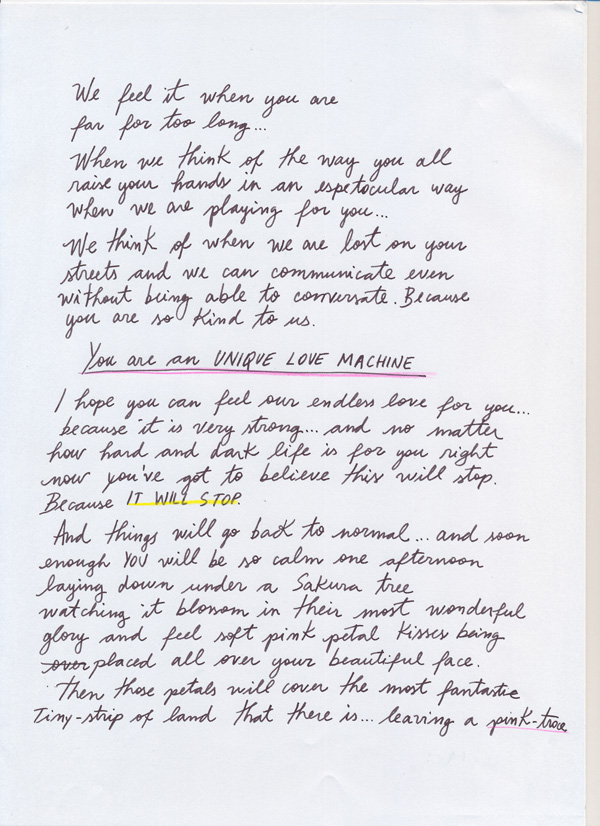 We feel it when you are
far for too long...
When we think of the way you all
raise your hands in an espetocular way
when we are playing for you...
We think of when we are lost on your
streets and we can communicate even
without being able to conversate. Because
you are so kind to us.
You are an UNIQUE LOVE MACHINE
I hope you can feel our endless love for you...
because it is very strong... and no matter
how hard and dark life is for you right
now you've got to believe this will stop.
Because IT WILL STOP.
And things will go back to normal... and soon
enough YOU will be so calm one afternoon
laying down under a Sakura tree
watching it blossom in their most wonderful
glory and feel soft pink petal kisses being
over placed all over your beautiful face.
Then those petals will cover the most fantastic
Tiny-strip of land that there is... leaving a pink-trace